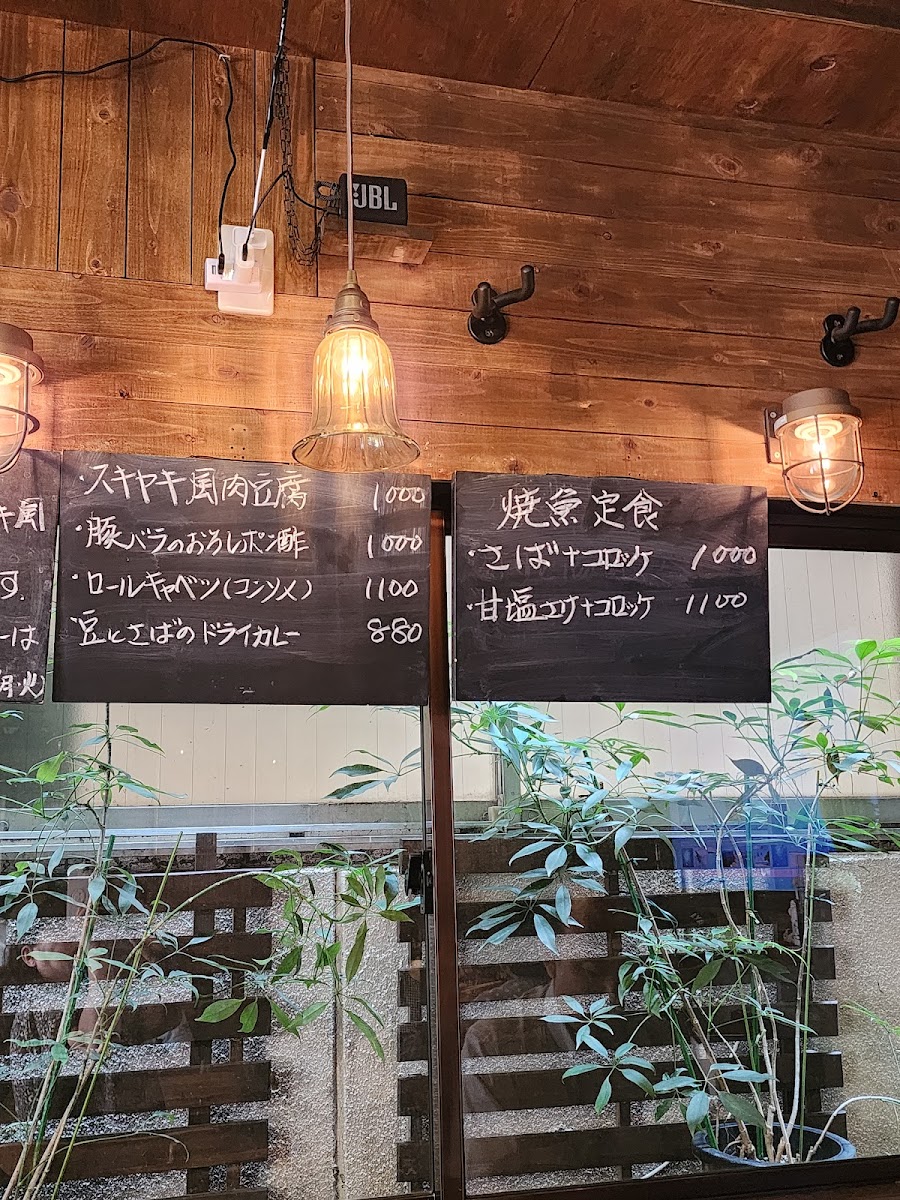 JBL
キ風
す.
ーは
月・火)
・スキヤキ風肉豆腐 1000
・豚バラのおろしポン酢 1000
・ロールキャベツ(コンソメ) 1100
・豆とさばのドライカレー 880
焼魚定食
・さば+コロッケ 1000
・甘塩さけ+コロッケ 1100